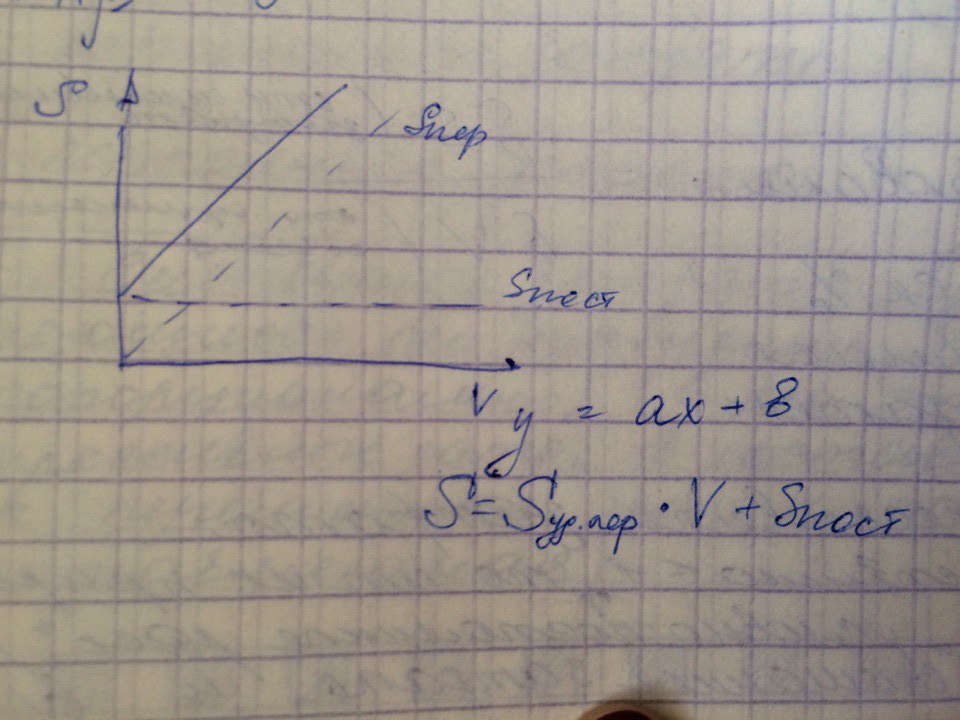 S
Sпер
Sпост
V
y = ax + в
S = Sуд.пер · V + Sпост